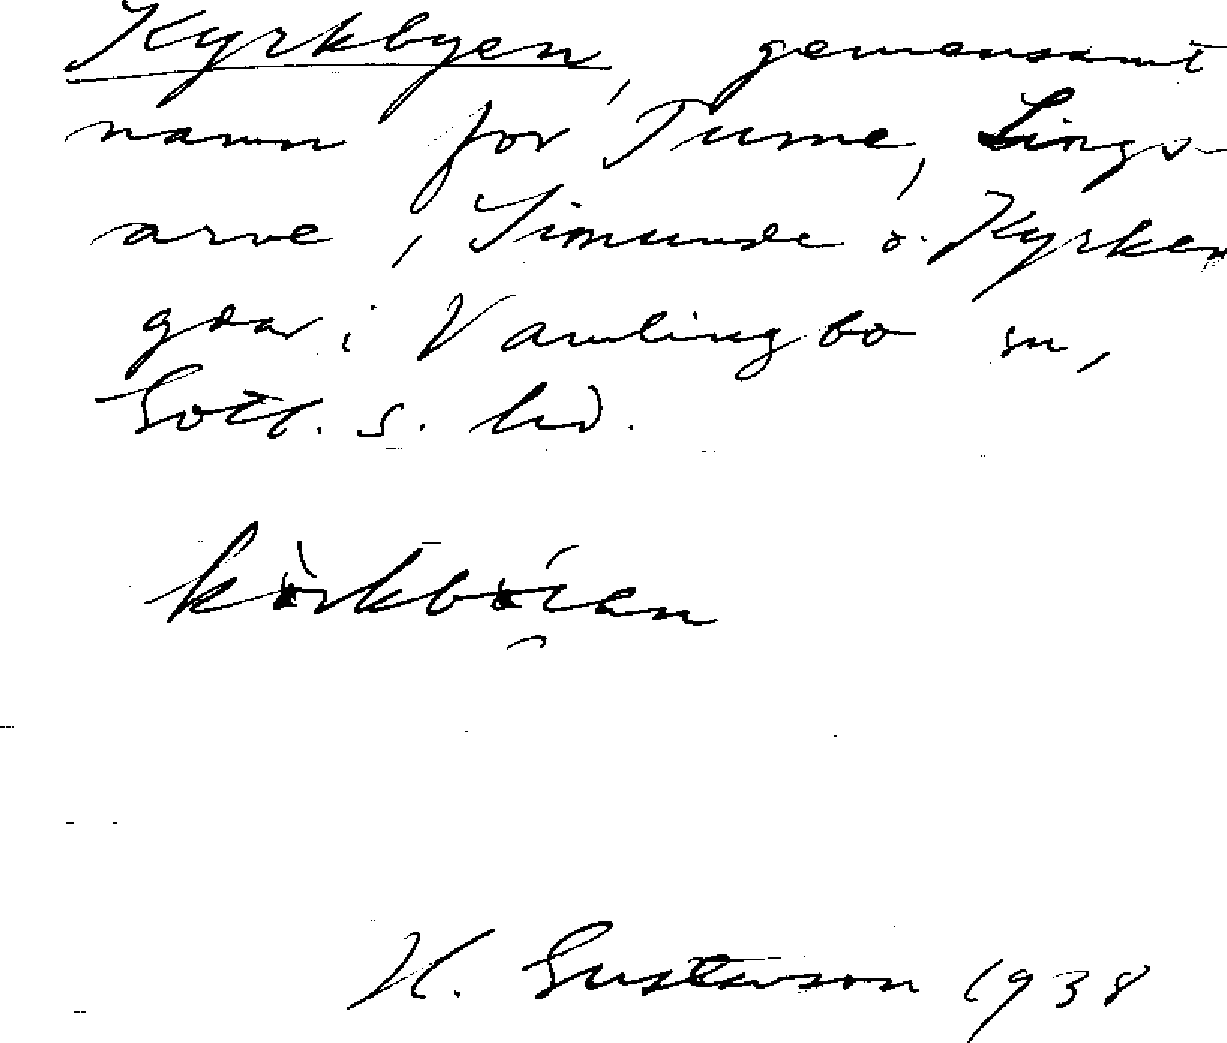 Kyrkbyen, gemensamt
namn för Tume, Lings-
arve, Simunde o. Kyrken
gdar i Vamlingbo sn,
Gotl. s. hd.
körkböien
H. Gustavson 1938